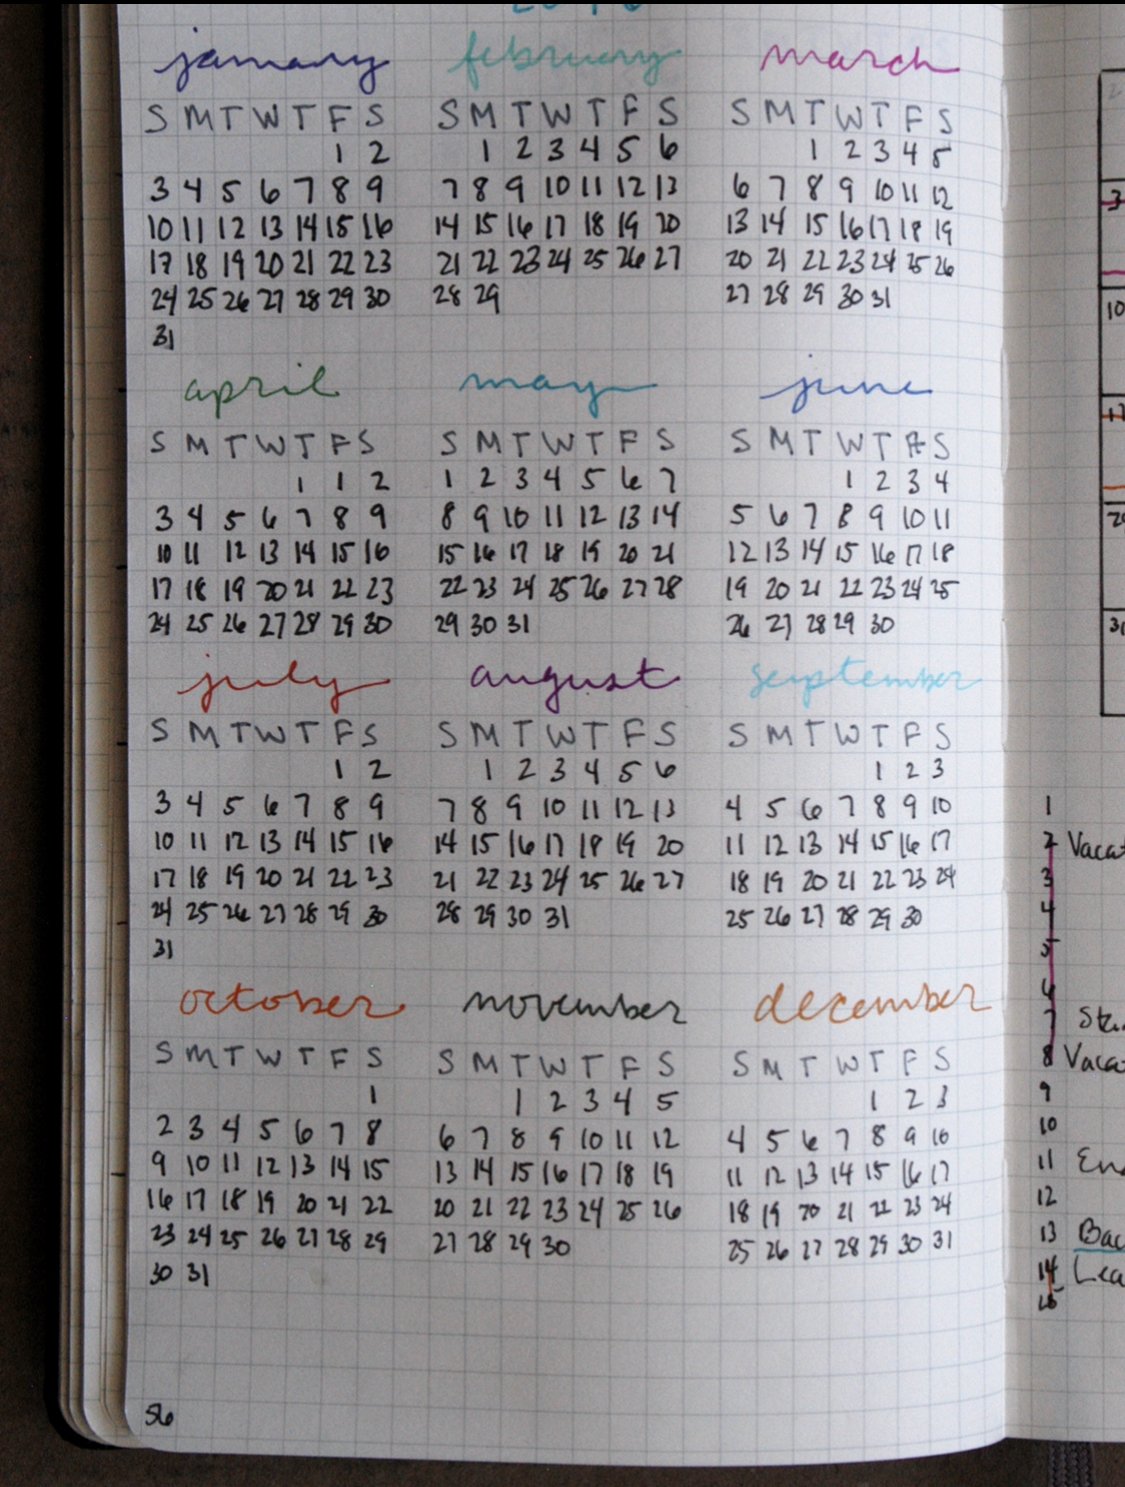 2016
january february march
S M T W T F S S M T W T F S S M T W T F S
1 2 1 2 3 4 5 6 1 2 3 4 5
3 4 5 6 7 8 9 7 8 9 10 11 12 13 6 7 8 9 10 11 12
10 11 12 13 14 15 16 14 15 16 17 18 19 20 13 14 15 16 17 18 19
17 18 19 20 21 22 23 21 22 23 24 25 26 27 20 21 22 23 24 25 26
24 25 26 27 28 29 30 28 29 27 28 29 30 31
31
april may june
S M T W T F S S M T W T F S S M T W T F S
1 1 2 1 2 3 4 5 6 7 1 2 3 4
3 4 5 6 7 8 9 8 9 10 11 12 13 14 5 6 7 8 9 10 11
10 11 12 13 14 15 16 15 16 17 18 19 20 21 12 13 14 15 16 17 18
17 18 19 20 21 22 23 22 23 24 25 26 27 28 19 20 21 22 23 24 25
24 25 26 27 28 29 30 29 30 31 26 27 28 29 30
july august seuptember
S M T W T F S S M T W T F S S M T W T F S
1 2 1 2 3 4 5 6 1 2 3
3 4 5 6 7 8 9 7 8 9 10 11 12 13 4 5 6 7 8 9 10
10 11 12 13 14 15 16 14 15 16 17 18 19 20 11 12 13 14 15 16 17
17 18 19 20 21 22 23 21 22 23 24 25 26 27 18 19 20 21 22 23 24
24 25 26 27 28 29 30 28 29 30 31 25 26 27 28 29 30
31
october november december
S M T W T F S S M T W T F S S M T W T F S
1 1 2 3 4 5 1 2 3
2 3 4 5 6 7 8 6 7 8 9 10 11 12 4 5 6 7 8 9 10
9 10 11 12 13 14 15 13 14 15 16 17 18 19 11 12 13 14 15 16 17
16 17 18 19 20 21 22 20 21 22 23 24 25 26 18 19 20 21 22 23 24
23 24 25 26 27 28 29 27 28 29 30 25 26 27 28 29 30 31
30 31
56
3
10
17
1
2 Vaca
3
4
5
6
7
8 Vaca
9
10
11 En
12
13 Bac
14 Lea
15